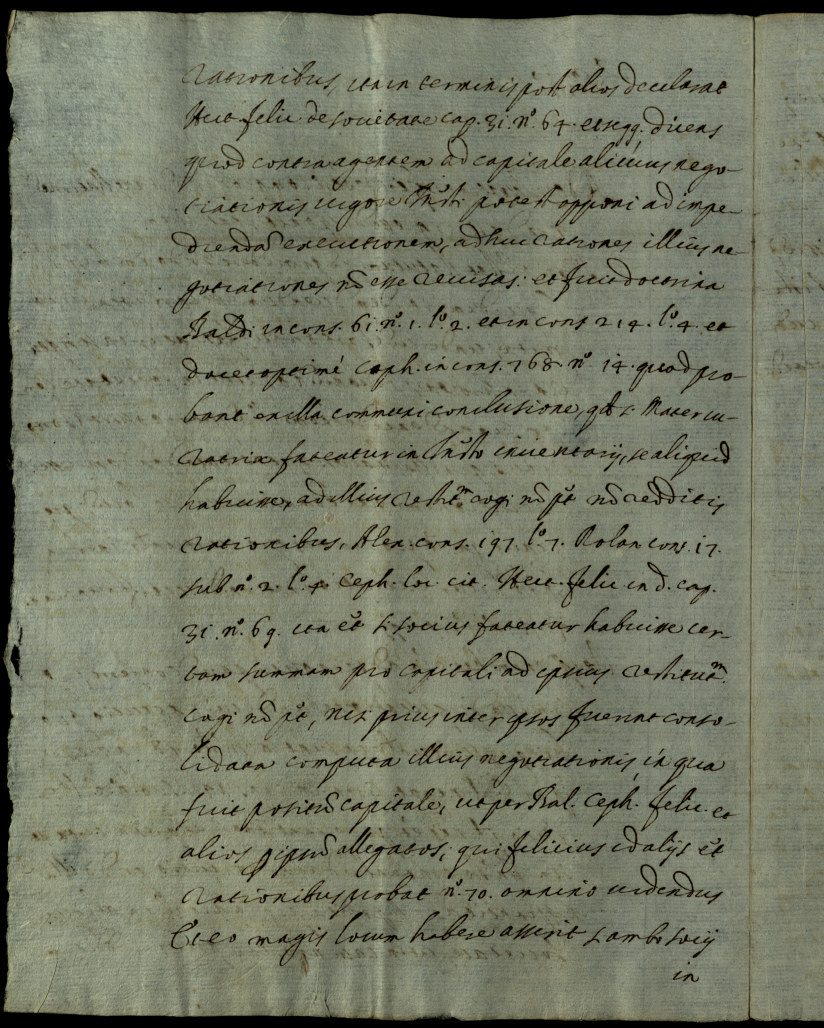 rationibus, ita in terminis post alios declarat
Hect. felic. de societate cap. 31. nº. 64. et seqq. dicens
quod contra agentem ad capitale alicuius nego-
tiationis vigore Instī potest opponi ad impe-
diendā executionem, adhuc rationes illius ne-
gotiationes nō esse revisas: et fuit doctrina
Baldi in cons. 61. nº. 1. lº. 2. et in cons. 214. lº. 4. et
docet optimé Ceph. in cons. 768. nº. 14. quod pro-
bant ex illa communi conclusione, qd si Mater cu-
ratrix fateatur in Instō inventarij, se aliquid
habuisse, ad illius restit.m cogi nō pt nō redditis
rationibus, Alex. cons. 197. lº. 7. Rolan. cons. 17.
sub. nº. 2. lº. 4. Ceph. loc. cit. Hect. felic. in d. cap.
31. nº. 69. ita et si socius fateatur habuisse cer-
tam summam pro capitali ad ipsius restitut.m
cogi nō pt, nisi prius inter ipsos fuerint conso-
lidata computa illius negotiationis in qua
fuit positū capitale, ut per Bal. Ceph. felic. et
alios p ipsū allegatos; qui felicius id alijs et
rationibus probat nº. 70. omnino videndus
Et eo magis locum habere asserit si ambo socij
in